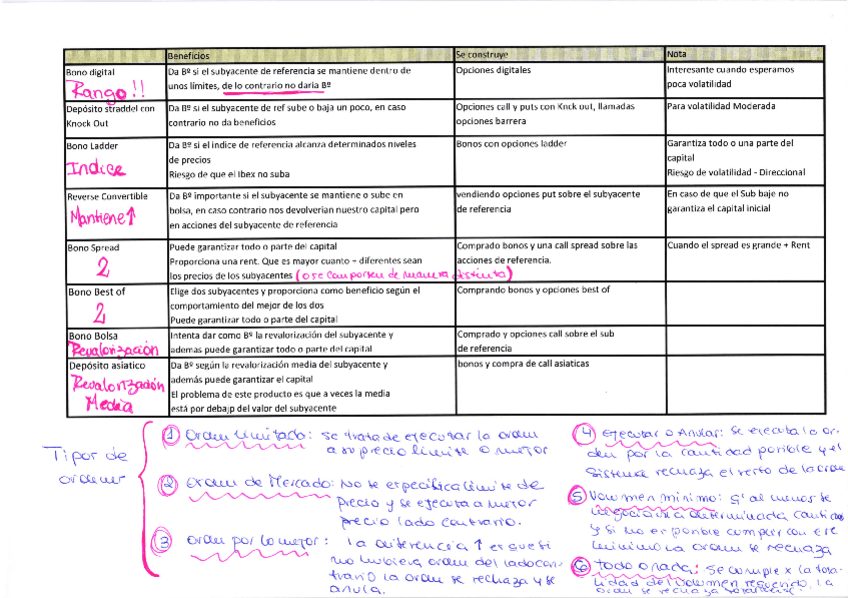 Beneficios Se construye Nota
Bono digital
Rango!!
Da Bº si el subyacente de referencia se mantiene dentro de
unos límites, de lo contrario no daria Bº
Opciones digitales
Interesante cuando esperamos
poca volatilidad
Depósito straddel con
Knock Out
Da Bº si el subyacente de ref sube o baja un poco, en caso
contrario no da beneficios
Opciones call y puts con Knck out, llamadas
opciones barrera
Para volatilidad Moderada
Bono Ladder
Indice
Da Bº si el indice de referencia alcanza determinados niveles
de precios
Riesgo de que el Ibex no suba
Bonos con opciones ladder
Garantiza todo o una parte del
capital
Riesgo de volatilidad - Direccional
Reverse Convertible
Mantiene↑
Da Bº importante si el subyacente se mantiene o sube en
bolsa, en caso contrario nos devolverian nuestro capital pero
en acciones del subyacente de referencia
vendiendo opciones put sobre el subyacente
de referencia
En caso de que el Sub baje no
garantiza el capital inicial
Bono Spread
2
Puede garantizar todo o parte del capital
Proporciona una rent. Que es mayor cuanto + diferentes sean
los precios de los subyacentes (o se comporten de manera distinta)
Comprado bonos y una call spread sobre las
acciones de referencia.
Cuando el spread es grande + Rent
Bono Best of
2
Elige dos subyacentes y proporciona como beneficio según el
comportamiento del mejor de los dos
Puede garantizar todo o parte del capital
Comprando bonos y opciones best of
Bono Bolsa
Revalorización
Intenta dar como Bº la revalorización del subyacente y
ademas puede garantizar todo o parte del capital
Comprado y opciones call sobre el sub
de referencia
Depósito asiatico
Revalorización
Media
Da Bº según la revalorización media del subyacente y
además puede garantizar el capital
El problema de este producto es que a veces la media
está por debajp del valor del subyacente
bonos y compra de call asiaticas
Tipos de
ordenes
1 Orden Limitada: se trata de ejecutar la orden
a su precio límite o mejor
2 Orden de Mercado: No se especifica límite de
precio y se ejecuta a mejor
precio lado contrario.
3 Orden por lo mejor: la diferencia ↑ es que si
no hubiera orden del lado con-
trario la orden se rechaza y se
anula.
4 Ejecutar o Anular: Se ejecuta la or-
den por la cantidad posible y el
sistema rechaza el resto de la orden
5 Volumen mínimo: Si al menos se
negocia una determinada cantidad
y si no es posible cumplir con ese
mínimo la orden se rechaza
6 todo o nada: Se cumple x la tota-
lidad del volumen requerido, la
orden se rechaza